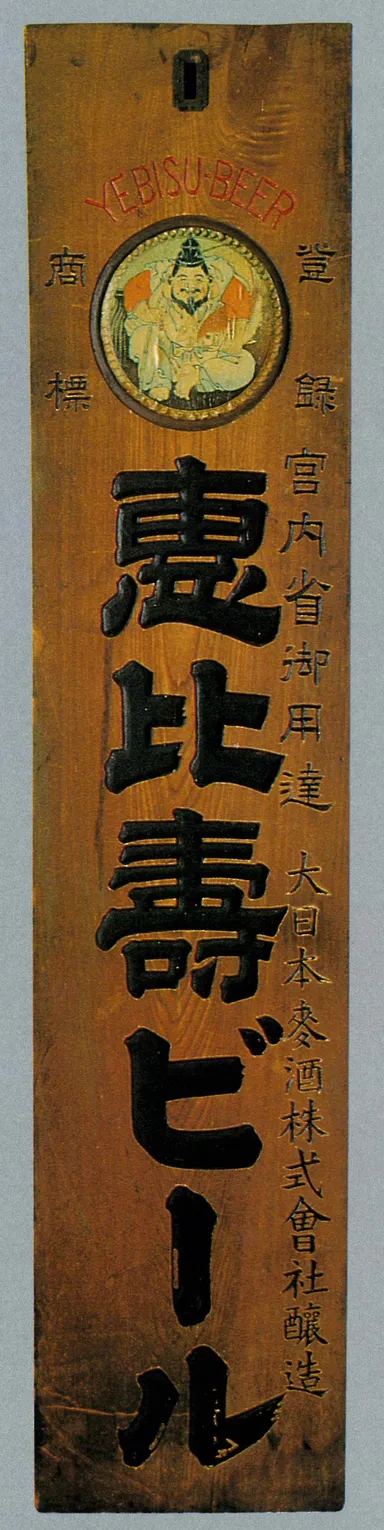 YEBISU-BEER
登録
商標
宮内省御用達 大日本麥酒株式會社釀造
惠比壽ビール